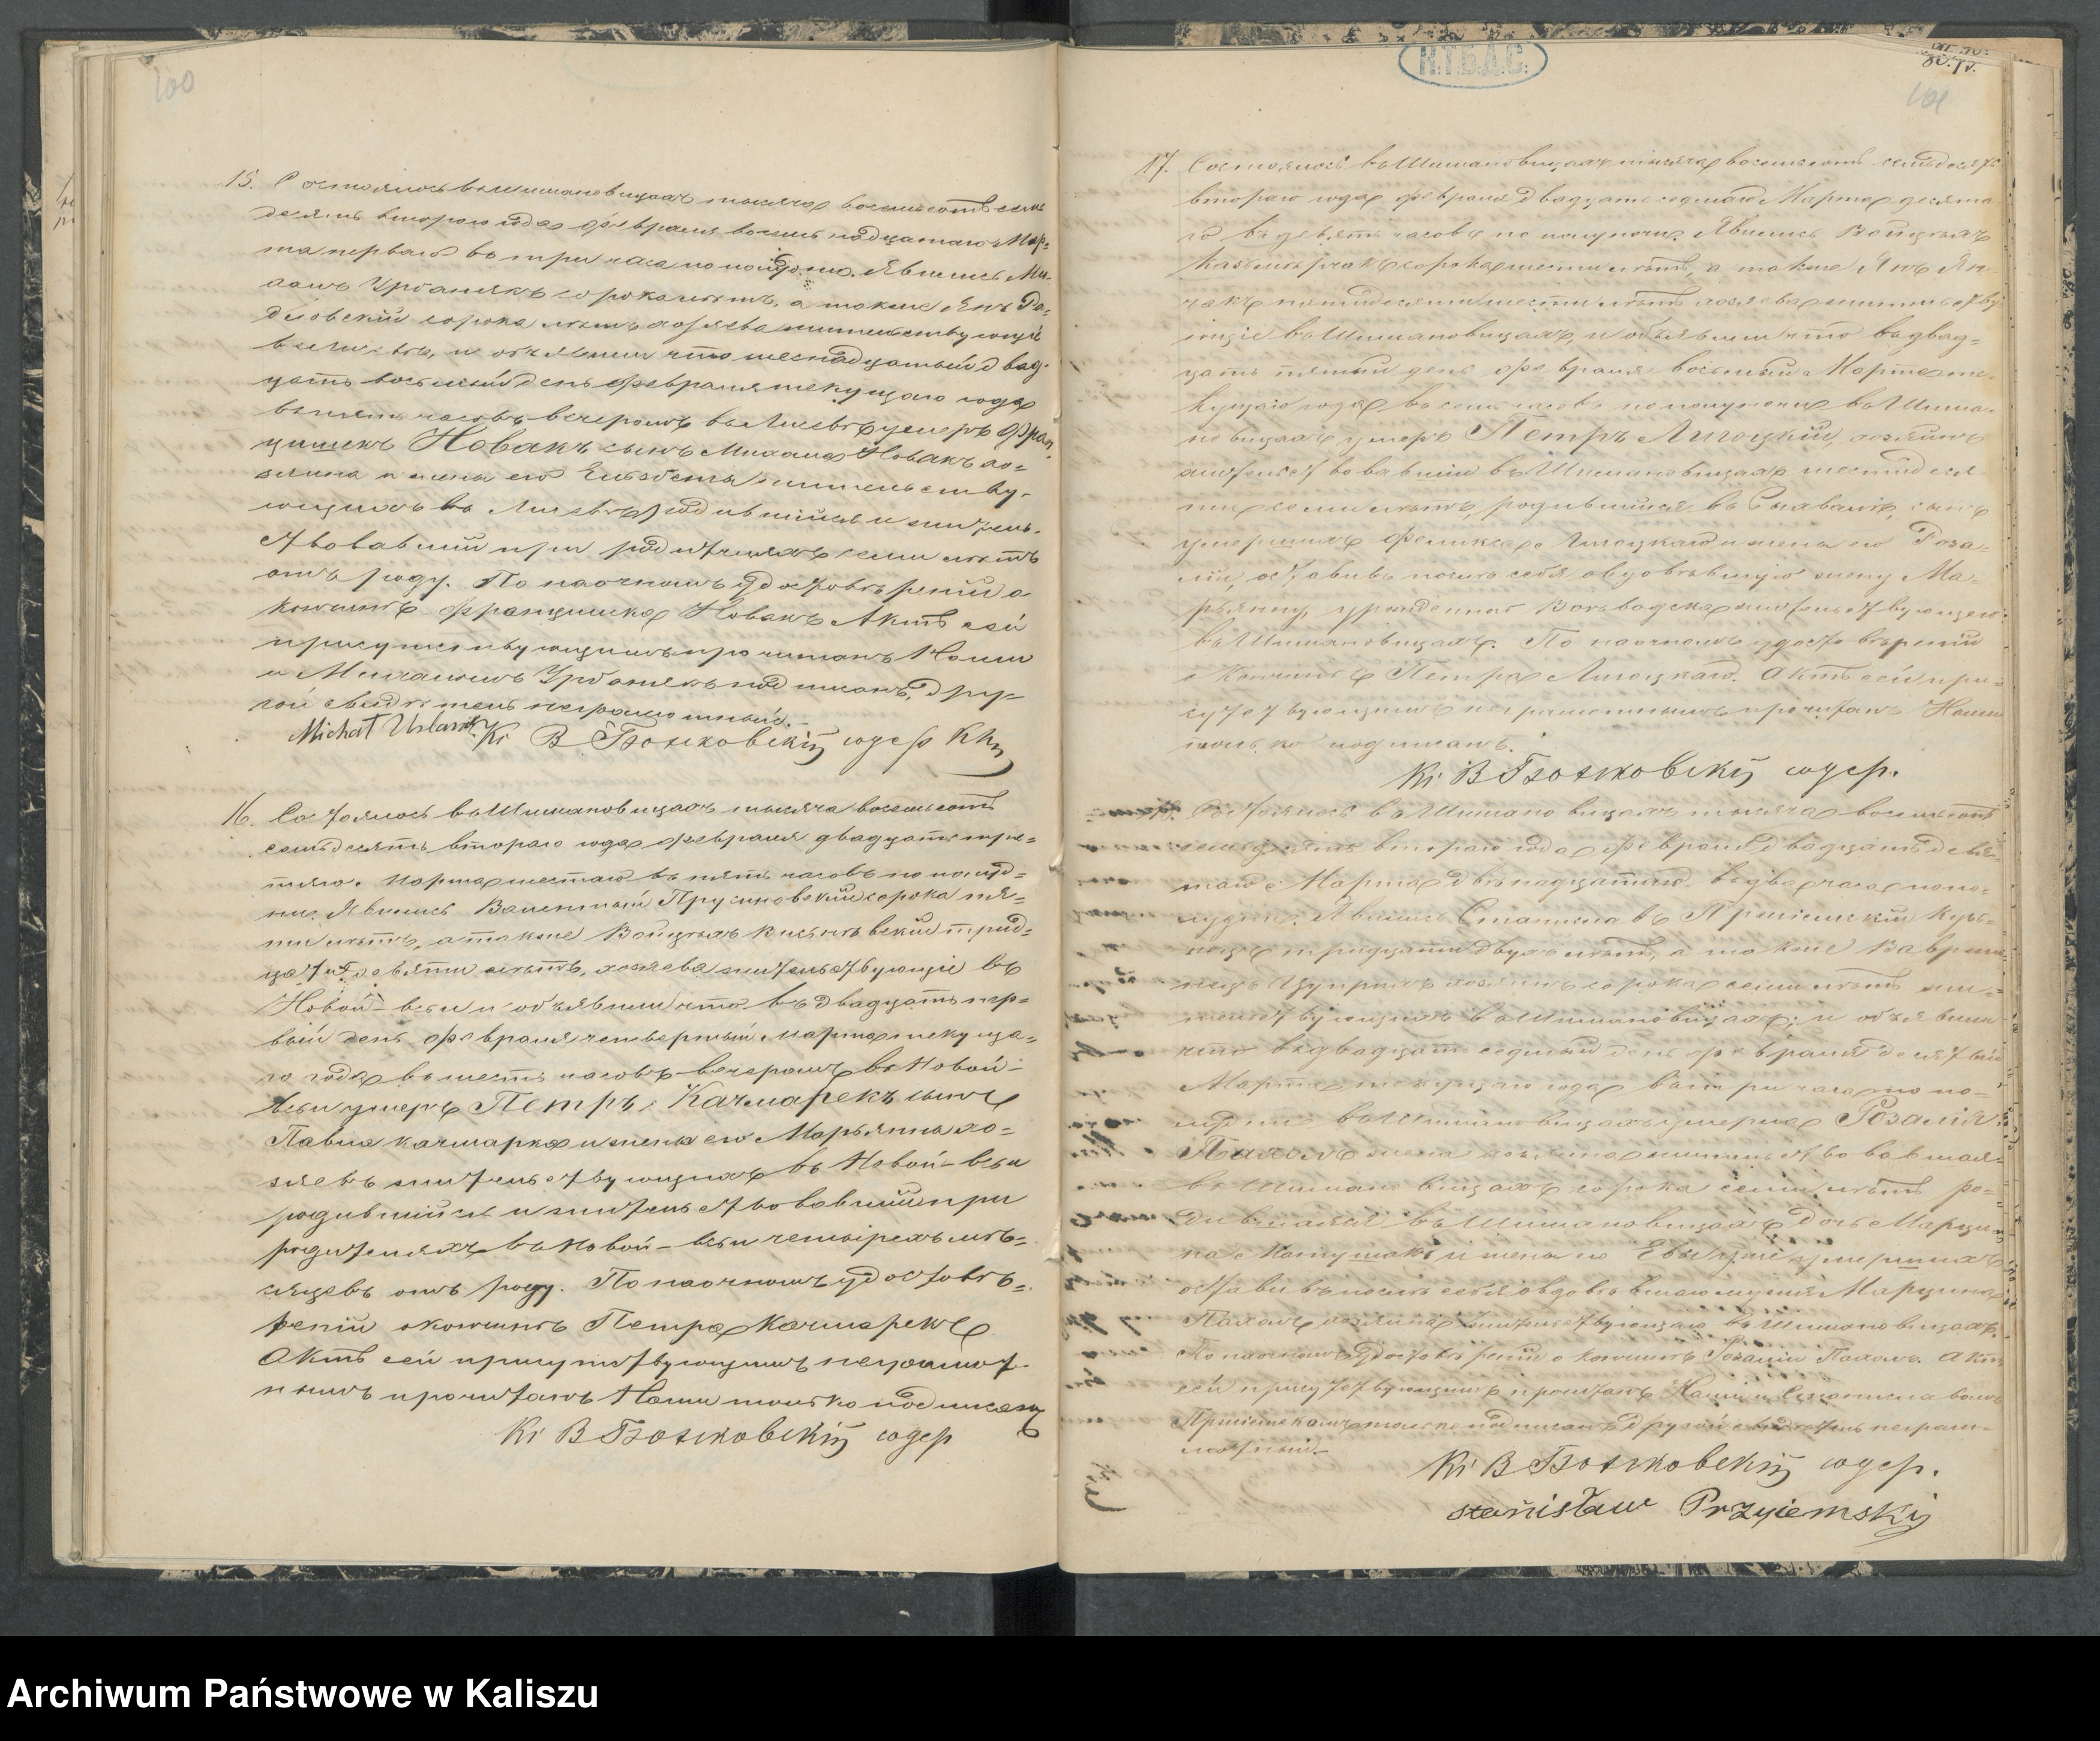 100
15. Состоялось въ Шимановицахъ тысяча восемьсотъ семь
десятъ втораго года Февраля восемьнадцатаго Мар=
та перваго въ три часа по полудни. Явились Ми=
халъ Урбанякъ сорока лѣтъ, а также Янъ
сорока лѣтъ хозяева жительствующіе
въ и объявили что шеснадцатый двад=
цать восьмый день Февраля текущаго года
въ пять часовъ вечеромъ въ умеръ Фран=
цишекъ Новакъ сынъ Михала Новакъ хо=
зяина и жены его Ельзбеты жительству=
ющихъ въ родившійся и житель=
ствовавшій при родителяхъ семи лѣтъ
отъ роду. По наочномъ удостовѣреніи о
кончинѣ Францишка Новакъ Актъ сей
присутствующимъ прочитанъ Нами
и Михаломъ Урбанякъ подписанъ, дру=
гой свидѣтель неграмотный.
Michał Urbaniak Кс В Божковскій содер КНг
16. Состоялось въ Шимановицахъ тысяча восемьсотъ
семьдесятъ втораго года Февраля двадцать тре=
тяго, Марта шестаго въ пять часовъ по полуд=
ни. Явились Валентый Прусиновскій сорока пя=
ти лѣтъ, а также Войцехъ трид=
цати девяти лѣтъ, хозяева жительствующіе въ
Новой-вси и объявили что въ двадцать пер=
вый день Февраля четвертый Марта текуща=
го года въ шесть часовъ вечеромъ въ Новой-
вси умеръ Петръ Качмарекъ сынъ
Павла Качмарка и жены его Марьянны хо=
зяевъ жительствующихъ въ Новой-вси
родившійся и жительствовавшій при
родителяхъ въ Новой-вси четырехъ мѣ=
сяцевъ отъ роду. По наочномъ удостовѣ=
реніи о кончинѣ Петра Качмарекъ
Актъ сей присутствующимъ неграмот=
нымъ прочитанъ Нами только подписанъ
Кс В Божковскій содер
Н.Т.Б.Д.С.
101
17. Состоялось въ Шимановицахъ тысяча восемьсотъ семьдесятъ
втораго года Февраля двадцать седмаго Марта десята=
го въ девять часовъ по полуночи. Явились Войцехъ
Казьмерчакъ сорока шести лѣтъ, а также Янъ Ян=
чакъ пятидесяти шести лѣтъ хозяева жительству=
ющіе въ Шимановицахъ, и объявили что въ двад=
цать пятый день Февраля восьмый Марта те=
кущаго года въ семь часовъ по полуночи въ Шима=
новицахъ умеръ Петръ Лигоцкій, хозяинъ
жительствовавшій въ Шимановицахъ шестидеся=
ти семи лѣтъ, родившійся въ сынъ
умершихъ Феликса Лигоцкаго и жены его Роза=
ліи, оставивъ послѣ себя овдовѣвшую жену Ма=
рьянну, урожденная жительствующею
въ Шимановицахъ. По наочномъ удостовѣреніи
о кончинѣ Петра Лигоцкаго. Актъ сей при=
сутствующимъ неграмотнымъ прочитанъ Нами
только подписанъ.
Кс В Божковскій содер.
Состоялось въ Шимановицахъ тысяча восемьсотъ
семьдесятъ втораго года Февраля двадцать девя=
таго Марта двѣнадцатаго въ два часа по по=
лудни. Явились Станиславъ Пршіемскій куз=
нецъ тридцати двухъ лѣтъ, а также Вавржи=
нецъ хозяинъ сорока семи лѣтъ жи=
тельствующихъ въ Шимановицахъ; и объявили
что въ двадцать седмый день Февраля десятый
Марта текущаго года въ три часа по по=
лудни въ Шимановицахъ умерла Розалія
Пахолъ жена хозяина жительствовавшая
въ Шимановицахъ сорока семи лѣтъ ро=
дившаяся въ Шимановицахъ дочь Марци=
на и жены его Евы уже умершихъ
оставивъ послѣ себя овдовѣвшаго мужа Марцина
Пахолъ хозяина жительствующаго въ Шимановицахъ.
По наочномъ удостовѣреніи о кончинѣ Розаліи Пахолъ. Актъ
сей присутствующимъ прочитанъ Нами и Станиславомъ
Пршіемскимъ только подписанъ другой свидѣтель неграм=
мотный.
Кс В Божковскій содер.
Stanisław Przyiemski
Archiwum Państwowe w Kaliszu